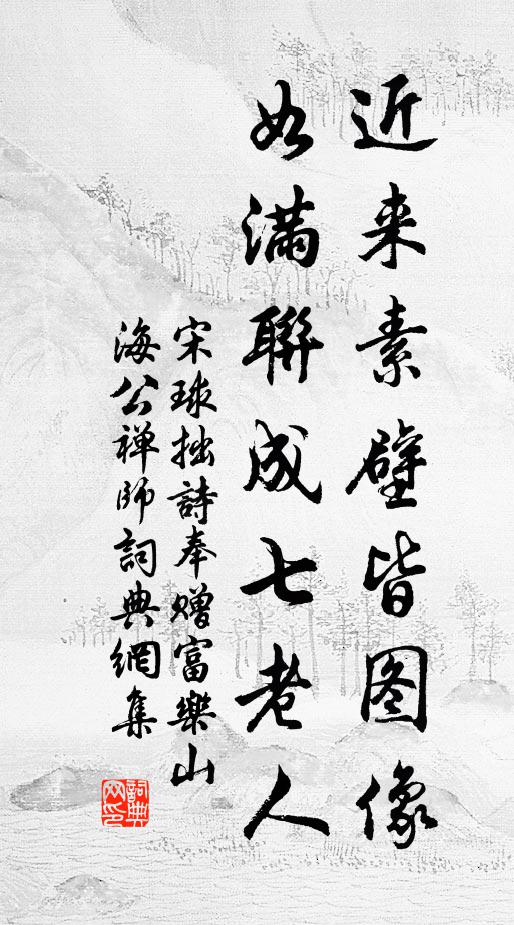 近来素壁皆图像
如满联成七老人
宋球拙詩奉赠富樂山
海公禅师詞典網集
詞典网印